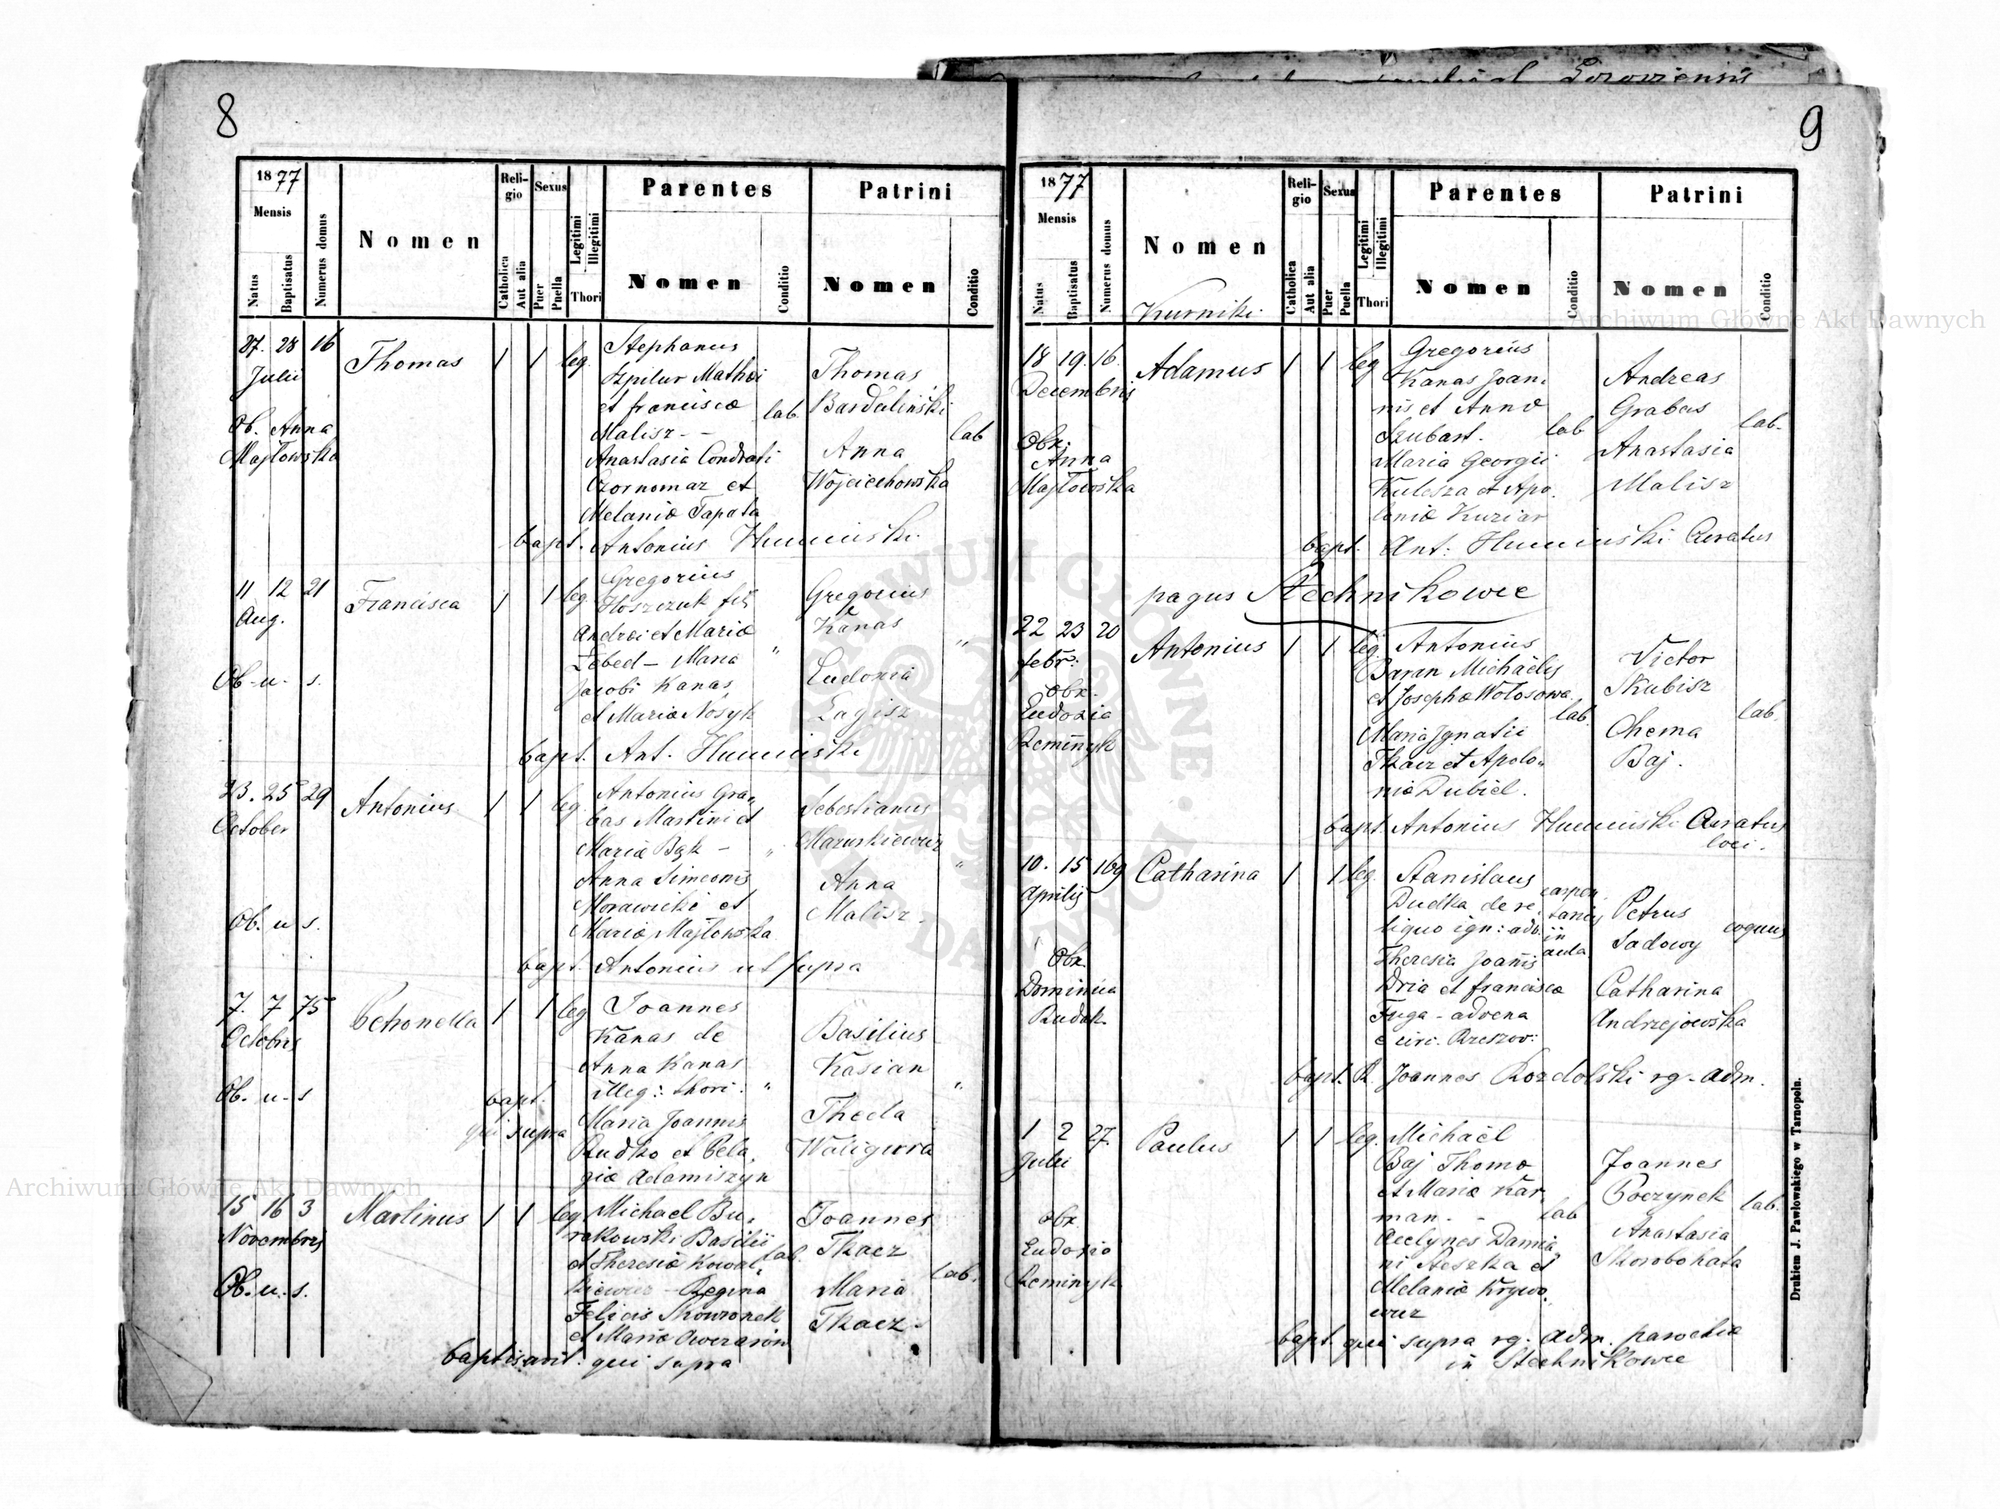 Lozoviensis
8
1877
Mensis
Natus
Baptisatus
Numerus domus
Nomen
Religio
Catholica
Aut alia
Sexus
Puer
Puella
Legitimi
Illegitimi
Thori
Parentes
Nomen
Conditio
Patrini
Nomen
Conditio
27. 28 16
Julii
Ob. Anna
Majtowska
Thomas
1 1 leg.
Stephanus
Szpilur Mathæi
et franciscæ
Malisz - -
Anastasia Condrati
Czornomaz et
Melaniæ Tapota
lab
Thomas
Bardaliński
Anna
Wojciechowska
lab
bapt. Antonius Humiński.
11 12 21
Aug.
Ob. u. s.
Francisca
1 1 leg
Gregorius
Hoszczuk fil.
Andrei et Mariæ
Łebed - Maria
Jacobi Kanas
et Mariæ Nosyk
"
Gregorius
Kanas
Eudonia
Lagisz
"
bapt. Ant. Humiński
23. 25 29
October
Ob. u s.
Antonius
1 1 leg.
Antonius Gra-
bas Martini et
Mariæ Bąk -
Anna Simeonis
Morawicki et
Mariæ Majtowska
"
Sebestianus
Mazurkiewicz
Anna
Malisz.
"
bapt. Antonius ut supra
7. 7 75
Octobris
Ob. u. s
Petronella
1 1 leg
Joannes
Kanas de
Anna Kanas
illeg: thori.
Maria Joannis
Rudko et Pela-
giæ Adamiszyn
"
Basilius
Kasian
Thecla
Waligura
"
bapt.
qui supra
15 16 3
Novembris
Ob. u. s.
Martinus
1 1 leg
Michael Bu-
rakowski Basilii
et Theresiæ Kowal-
kiewicz - Regina
Felicis Skowronek
et Mariæ
lab.
Joannes
Tkacz
Maria
Tkacz
lab.
baptisavit. qui supra
9
1877
Mensis
Natus
Baptisatus
Numerus domus
Nomen
Kurniki
Religio
Catholica
Aut alia
Sexus
Puer
Puella
Legitimi
Illegitimi
Thori
Parentes
Nomen
Conditio
Patrini
Nomen
Conditio
18 19. 16.
Decembris
Obx.
Anna
Majtowska
Adamus
1 1 leg
Gregorius
Kanas Joan-
nis et Annæ
Szubart.
Maria Georgii
Kulesza et Apo-
loniæ Kuziar
lab
Andreas
Grabas
Anastasia
Malisz
lab.
bapt. Ant: Humiński Curatus
pagus Stechnikowce
22 23 20
febr:
Obx.
Eudoxia
Reminyk
Antonius
1 1 leg.
Antonius
Baran Michaelis
et Josephæ Wołosowa
Maria Ignatii
Tkacz et Apolo-
niæ Dubiel.
lab.
Victor
Skubisz
Chema
Baj.
lab.
bapt Antonius Humiński Curatus
loci.
10. 15 169
Aprilis
Obx.
Dominica
Rudak.
Catharina
1 1 leg.
Stanislaus
Dudka de re-
liquo ign: adv.
Theresia Joannis
Dria et franciscæ
Fuga - advena
e circ. Rzeszov:
carpen-
tarius
in
aula
Petrus
Sadowy
Catharina
Andrzejowska
coquus
bapt. R. Joannes Rozdolski rg. adm.
1 2 27.
Julii
Obx.
Eudoxia
Reminyk
Paulus
1 1 leg.
Michael
Baj Thomæ
et Mariæ Kar-
man. -
Acelynes Damia-
ni Reszka et
Melaniæ Krywo-
wicz
lab
Joannes
Poczynek
Anastasia
Skorobohata
lab.
bapt. qui supra rg. adm. parochia
in Stechnikowce
Drukiem J. Pawłowskiego w Tarnopolu.
Archiwum Główne Akt Dawnych
Archiwum Główne Akt Dawnych
ARCHIWUM GŁÓWNE AKT DAWNYCH